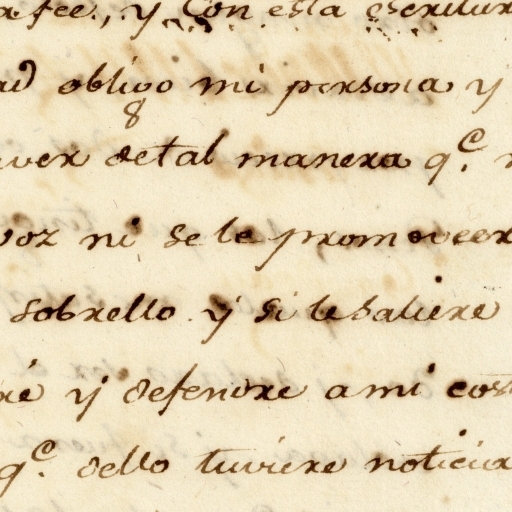 a fee., y Con esta escritur
ad obligo mi persona y
8
ver detal manera q.e
voz ni se le promoveer
sobrello y si lesaliere
re y defendre ami cos
q.e dello tuviere noticia